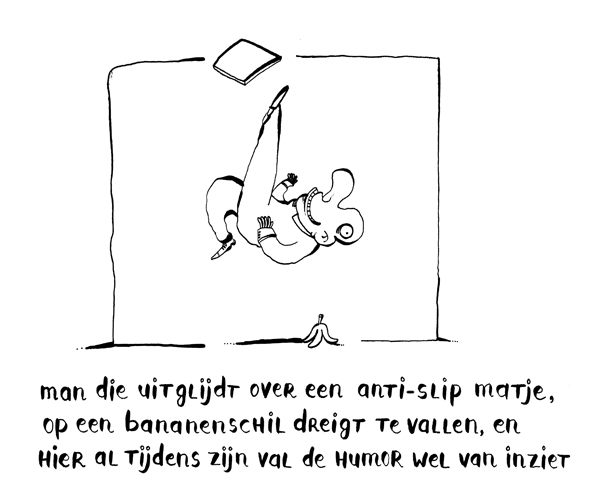 man die uitglijdt over een anti-slip matje,
op een bananenschil dreigt te vallen, en
hier al tijdens zijn val de humor wel van inziet